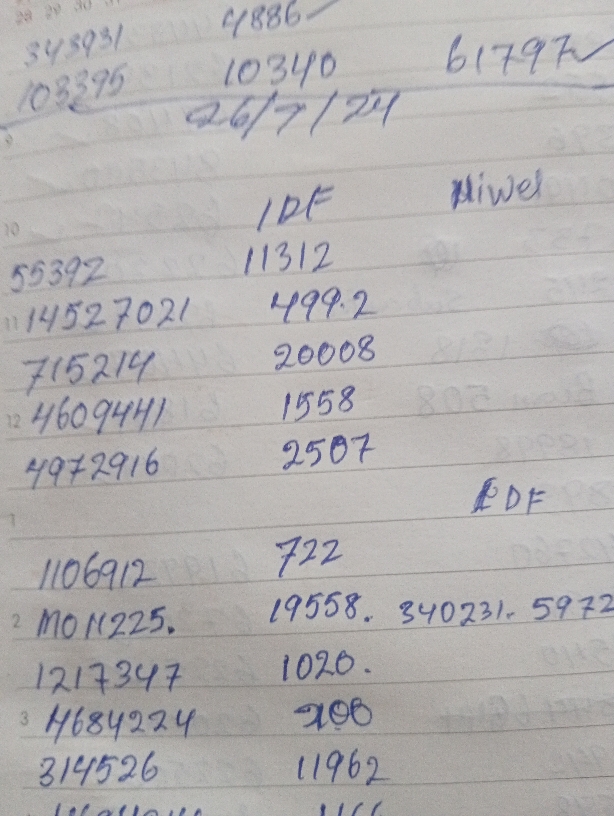 28 29 30
4886
343931
103395 10340 61797
26/7/24
9
10 IDF Niwel
55392 11312
11 14527021 499.2
715214 20008
12 4609441 1558
4972916 2507
1 IDF
1106912 722
2 19558. 340231. 5972
1217347 1020.
3 4684224 200
314526 11962